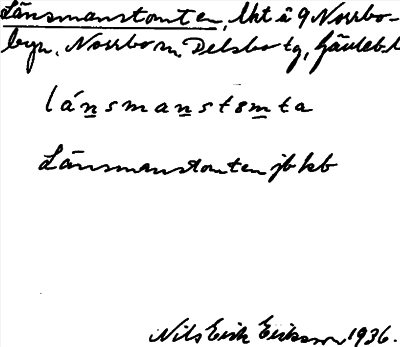 Länsmanstomten, lht å 9 Norrbo-
byn, Norrbo sn, Delsbo tg, Gävleb. l
lánsmanstomta
Länsmanstomten jb kb
Nils Erik Eriksson 1936.